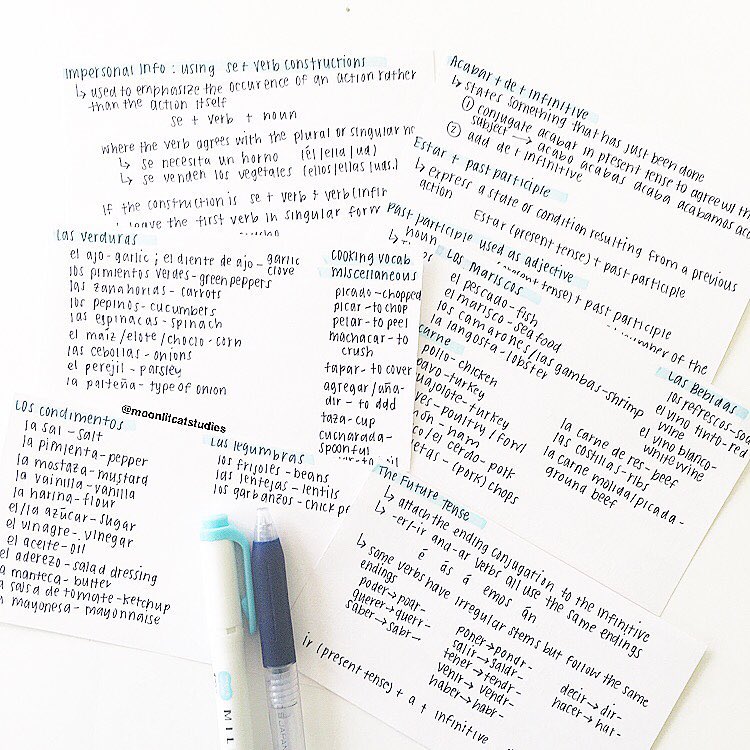 Impersonal Info: using se + verb constructions
↳ used to emphasize the occurence of an action rather
than the action itself
se + verb + noun
where the verb agrees with the plural or singular
↳ se necesita un horno (él/ella/ud)
↳ se venden los vegetales (ellos/ellas/uds.)
If the construction is se + verb + verb (infin
leave the first verb in singular form
Acabar + de + infinitive
↳ states something that has just been done
① conjugate acabar in present tense to agree with
subject → acabo acabas acaba acabamos
② add de + infinitive
Estar + past participle
↳ express a state or condition resulting from a previous
action
Estar (present tense) + past participle
Past participle used as adjective
noun
tense) + past participle
number of the
Las verduras
el ajo - garlic ; el diente de ajo - garlic
clove
los pimientos verdes - green peppers
las zanahorias - carrots
los pepinos - cucumbers
las espinacas - spinach
el maíz/elote/choclo - corn
las cebollas - onions
el perejil - parsley
la palteña - type of onion
cooking vocab
miscellaneous
picado - chopped
picar - to chop
pelar - to peel
machacar - to
crush
tapar - to cover
agregar/aña-
dir - to add
taza - cup
cucharada -
spoonful
Los Mariscos
el pescado - fish
el marisco - seafood
los camarones/las gambas - shrimp
la langosta - lobster
carne
pollo - chicken
pavo - turkey
guajolote - turkey
ves - poultry/fowl
món - ham
co/el cerdo - pork
etas - (pork) chops
la carne de res - beef
las costillas - ribs
la carne molida/picada -
ground beef
Las Bebidas
los refrescos - so
el vino tinto - red
wine
el vino blanco -
white wine
@moonlitcatstudies
Los condimentos
la sal - salt
la pimienta - pepper
la mostaza - mustard
la vainilla - vanilla
la harina - flour
el/la azúcar - sugar
el vinagre - vinegar
el aceite - oil
el aderezo - salad dressing
a manteca - butter
a salsa de tomate - ketchup
a mayonesa - mayonnaise
Las legumbras
los frijoles - beans
las lentejas - lentils
los garbanzos - chick pe
The Future Tense
↳ attach the ending conjugation to the infinitive
↳ -er/-ir and -ar verbs all use the same endings
é ás á emos án
↳ some verbs have irregular stems but follow the same
endings
poder → podr-
querer → querr-
saber → sabr-
poner → pondr-
salir → saldr-
tener → tendr-
venir → vendr-
haber → habr-
decir → dir-
hacer → har-
ir (present tense) + a + infinitive
MIL